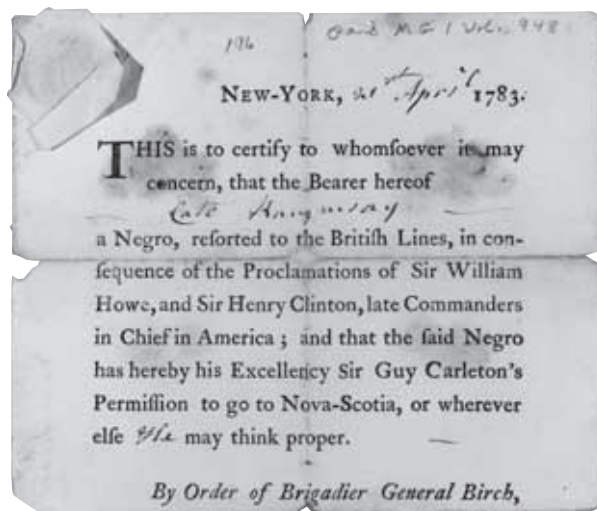 196
M G 1 Vol. 948
NEW-YORK, 21st April 1783.
THIS is to certify to whomſoever it may
concern, that the Bearer hereof
Cato Ramsay
a Negro, reſorted to the Britiſh Lines, in con-
ſequence of the Proclamations of Sir William
Howe, and Sir Henry Clinton, late Commanders
in Chief in America ; and that the ſaid Negro
has hereby his Excellency Sir Guy Carleton's
Permiſſion to go to Nova-Scotia, or wherever
elſe may think proper.
By Order of Brigadier General Birch,